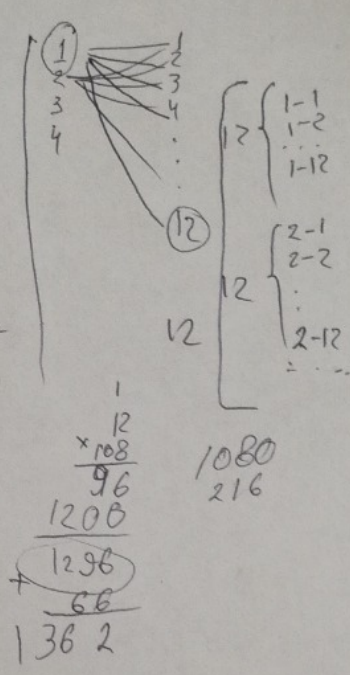 1 1
2 2
3 3
4 4
.
.
.
12
12
12 1-1
1-2
....
1-12
12 2-1
2-2
:
2-12
1
12
×108
96
1200
1296
+
66
1362
1080
216